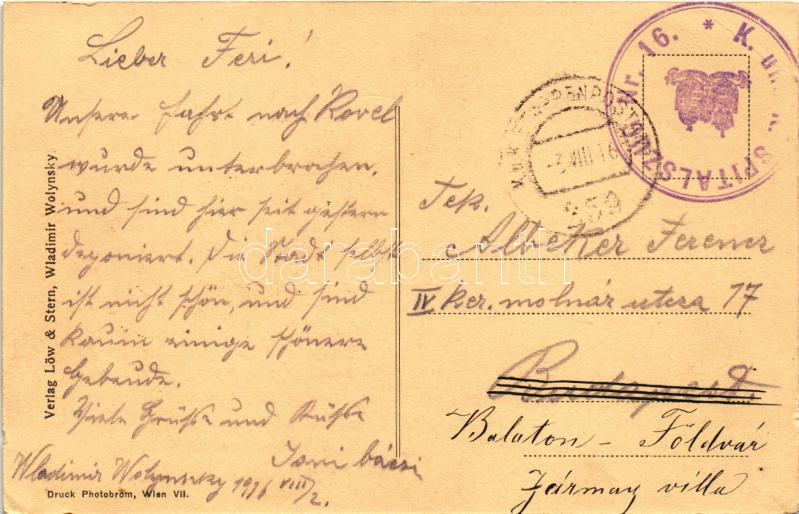 Lieber Feri!
Unsere Fahrt nach Kovel
wurde unterbrochen,
und sind hier seit gestern
deponiert. Die Stadt selbst
ist nicht schön, und sind
kaum einige schönere
Gebeude.
Viele Grüsse und Küsse
Jani bácsi
Wladimir Wolynsky 1916 VIII/2.
Verlag Löw & Stern, Wladimir Wolynsky
Druck Photobrom, Wien VII.
Nr. 16. * K. und K. SPITALSZUG
K.u.K. ETAPPENPOSTAMT
-3 VIII 16
darabanth
Tek.
Albeker Ferencz
IV Ker. molnár utcza 17
Budapest.
Balaton - Földvár
Jármay villa